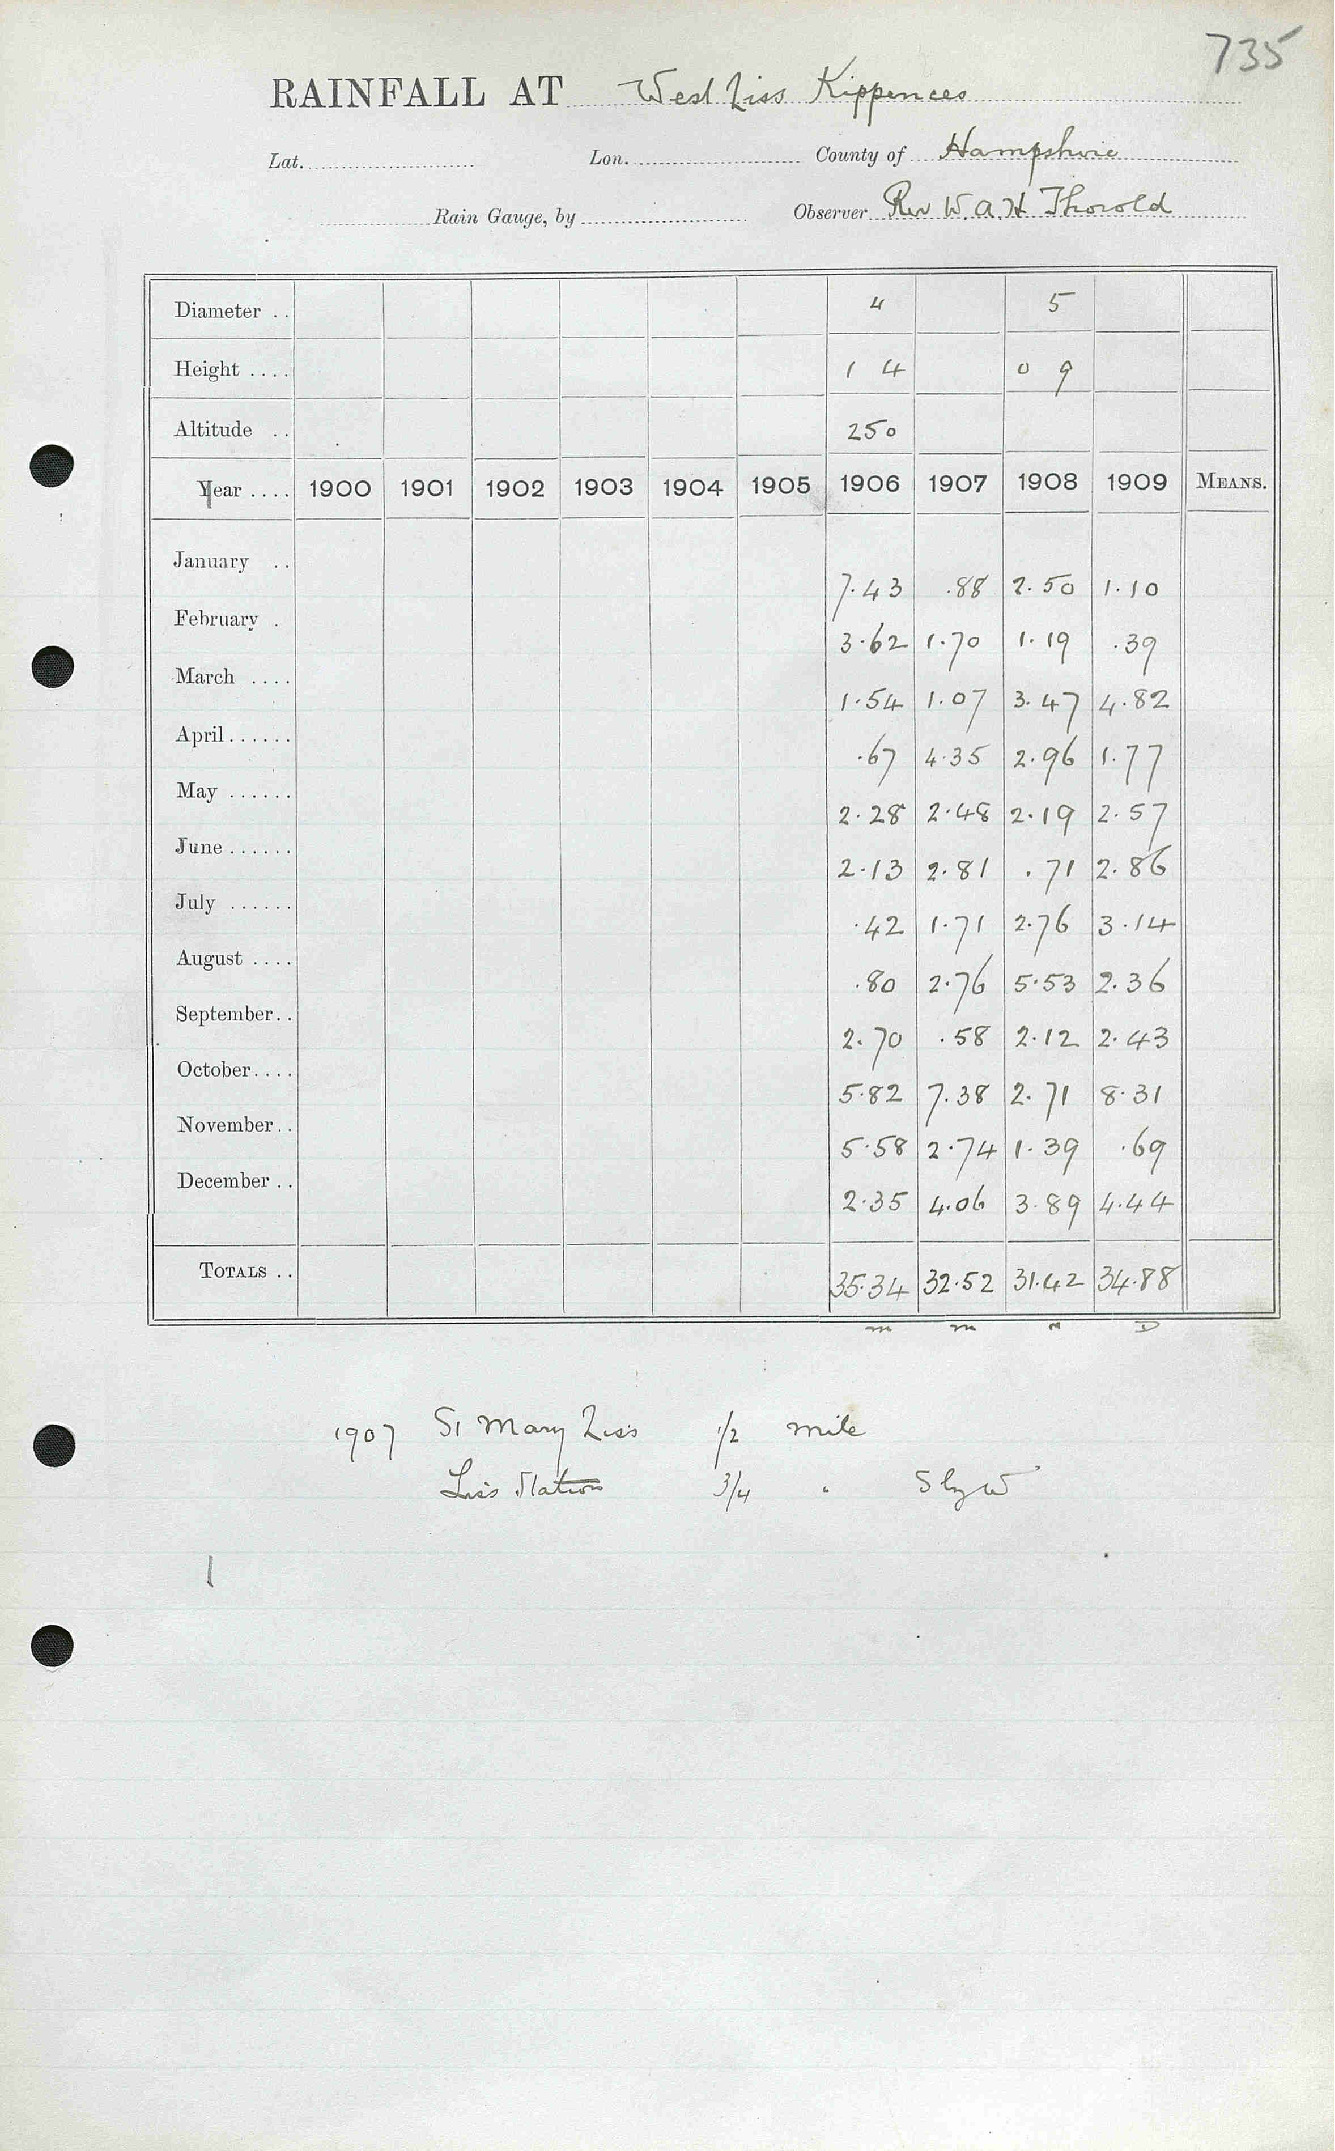 735
RAINFALL AT West Liss Kippences
Lat. Lon. County of Hampshire
Rain Gauge, by Observer Rev W. A. H Thorold
Diameter .. 4 5
Height .... 1 4 0 9
Altitude .. 250
Year .... 1900 1901 1902 1903 1904 1905 1906 1907 1908 1909 MEANS.
January .. 7.43 .88 2.50 1.10
February . 3.62 1.70 1.19 .39
March .... 1.54 1.07 3.47 4.82
April...... .67 4.35 2.96 1.77
May ...... 2.28 2.48 2.19 2.57
June...... 2.13 2.81 .71 2.86
July ...... .42 1.71 2.76 3.14
August .... .80 2.76 5.53 2.36
September.. 2.70 .58 2.12 2.43
October.... 5.82 7.38 2.71 8.31
November.. 5.58 2.74 1.39 .69
December .. 2.35 4.06 3.89 4.44
TOTALS .. 35.34 32.52 31.42 34.88
m m D
1907 St Mary Liss 1/2 mile
Liss Station 3/4 " S by W